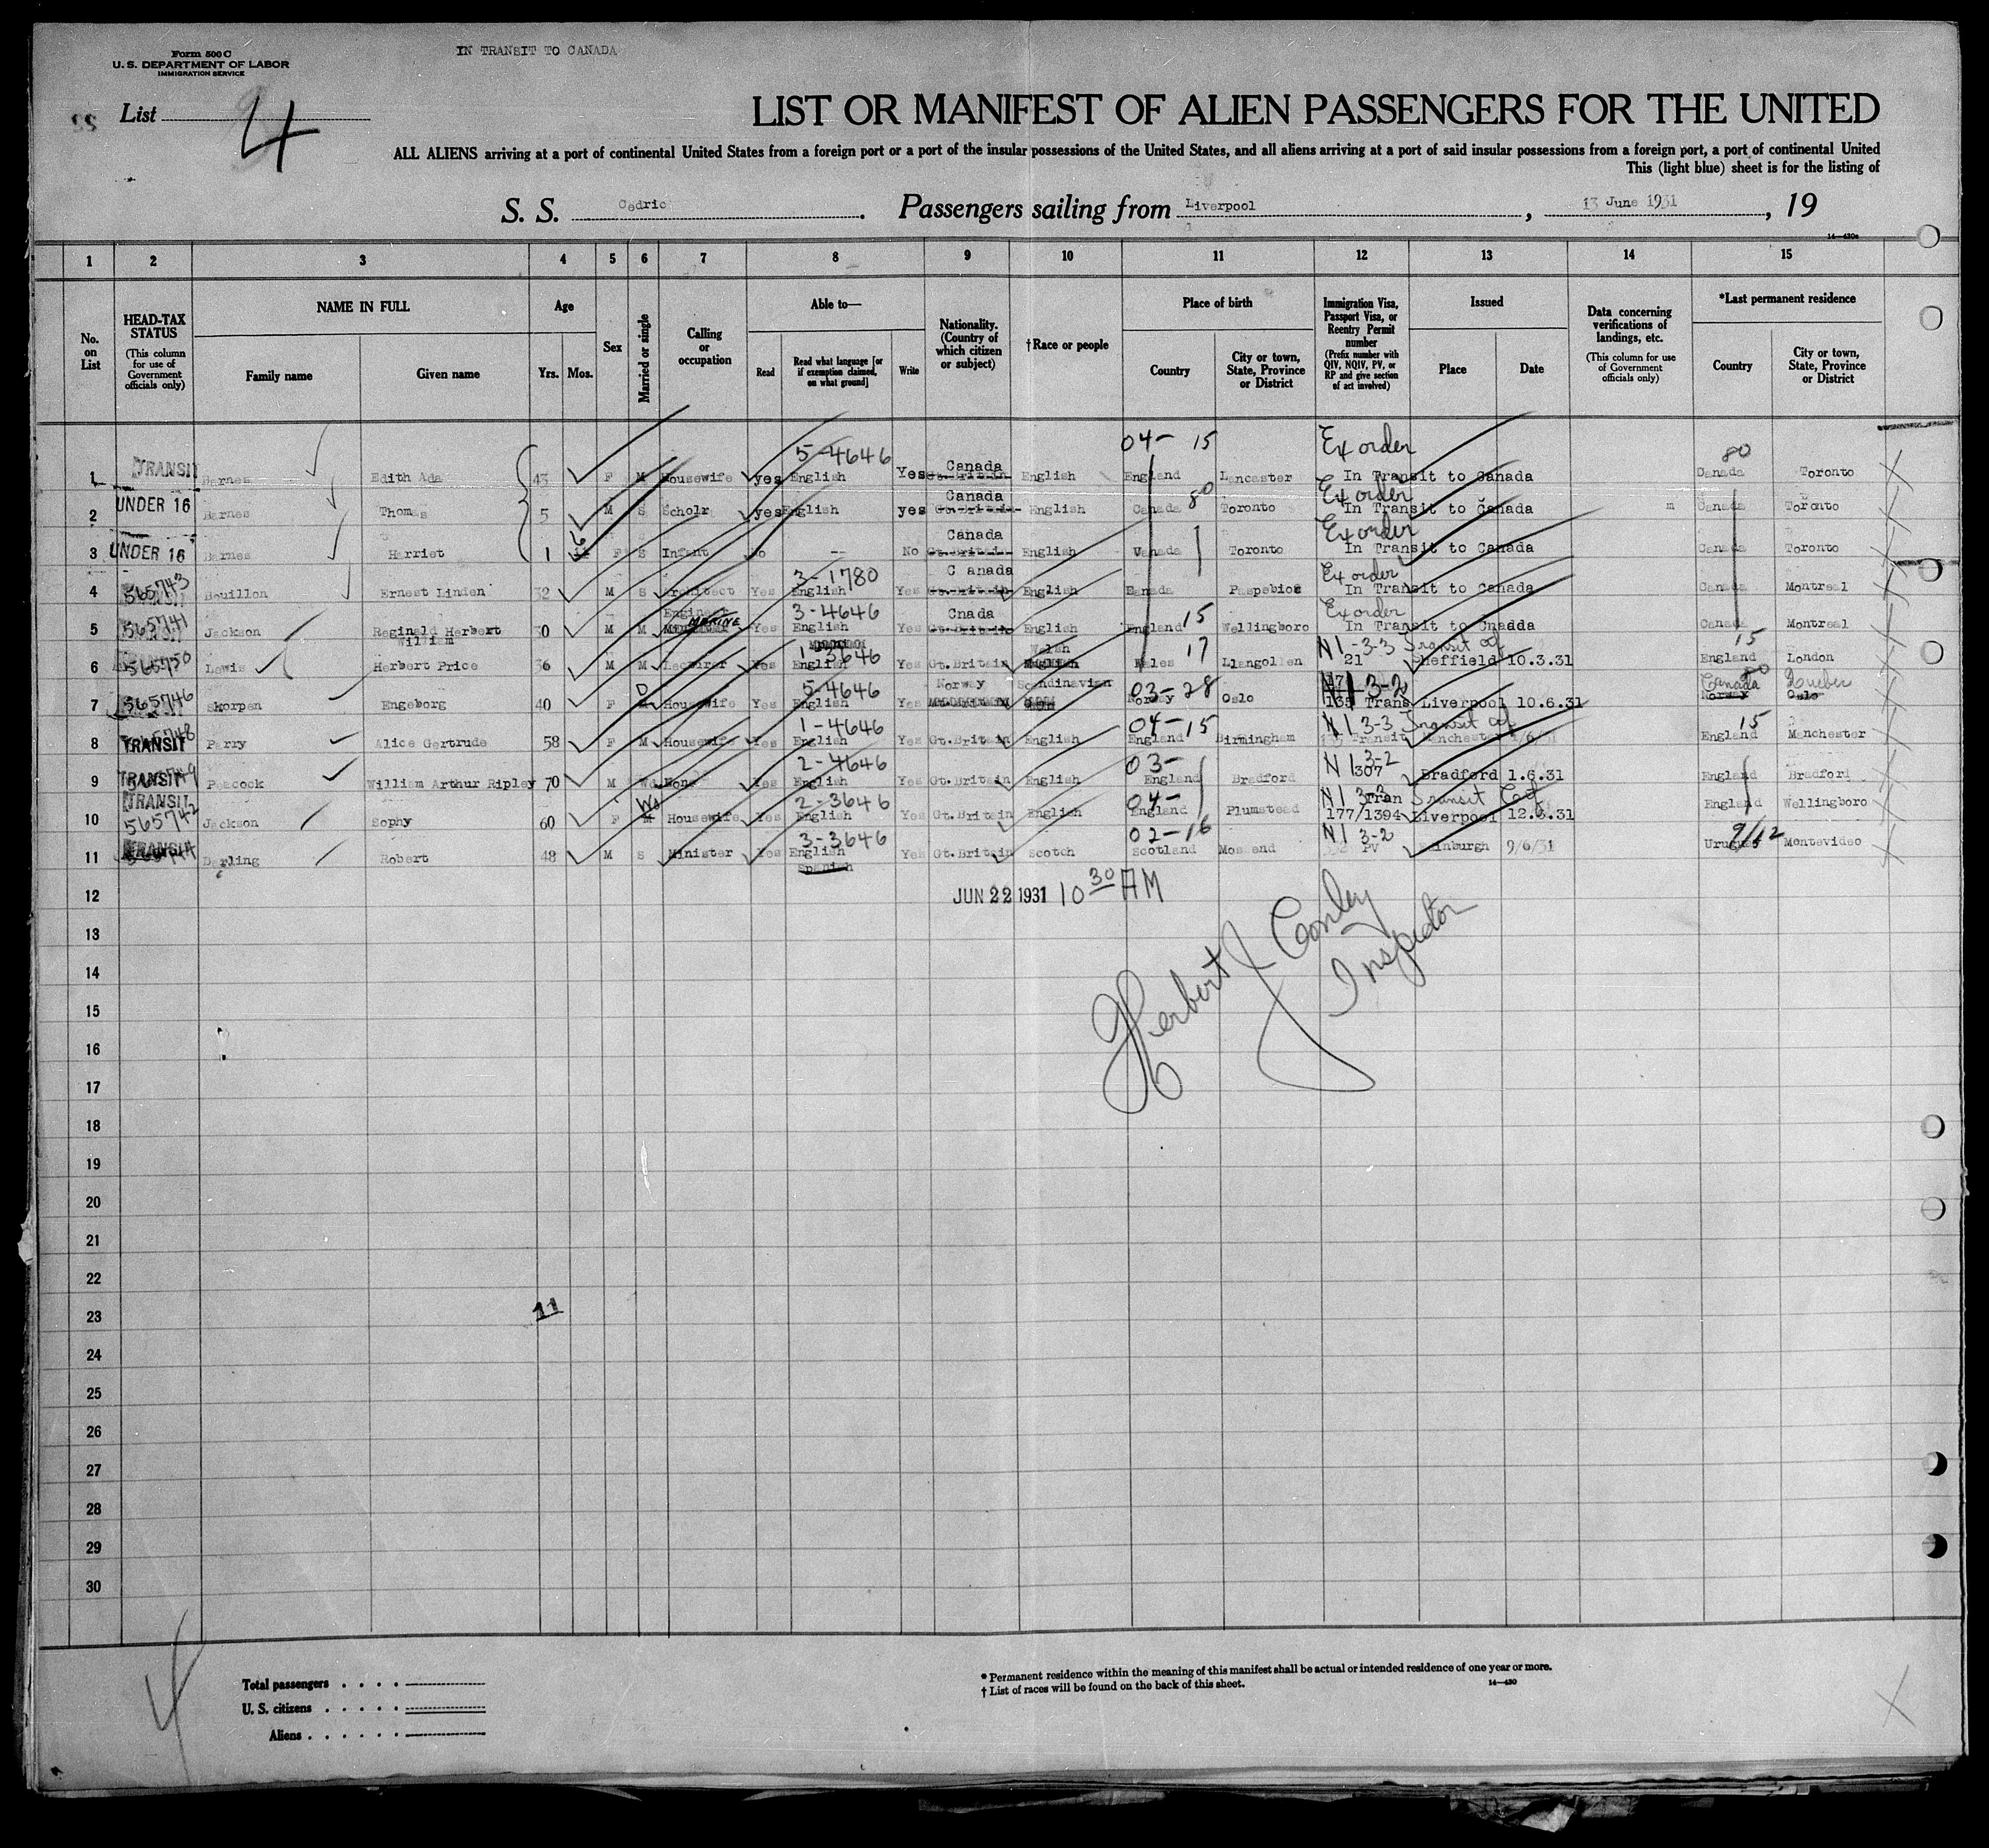 Form 500 C
U. S. DEPARTMENT OF LABOR
IMMIGRATION SERVICE
IN TRANSIT TO CANADA
List 4
LIST OR MANIFEST OF ALIEN PASSENGERS FOR THE UNITED
ALL ALIENS arriving at a port of continental United States from a foreign port or a port of the insular possessions of the United States, and all aliens arriving at a port of said insular possessions from a foreign port, a port of continental United
This (light blue) sheet is for the listing of
S. S. Cedric. Passengers sailing from Liverpool, 13 June 1931, 19
14—430a
1 2 3 4 5 6 7 8 9 10 11 12 13 14 15
No. on List
HEAD-TAX STATUS (This column for use of Government officials only)
NAME IN FULL Family name Given name
Age Yrs. Mos.
Sex
Married or single
Calling or occupation
Able to— Read Read what language [or if exemption claimed, on what ground] Write
Nationality. (Country of which citizen or subject)
†Race or people
Place of birth Country City or town, State, Province or District
Immigration Visa, Passport Visa, or Reentry Permit number (Prefix number with QIV, NQIV, PV, or RP and give section of act involved)
Issued Place Date
Data concerning verifications of landings, etc. (This column for use of Government officials only)
*Last permanent residence Country City or town, State, Province or District
5-4646 04- 15 Ex order 80
1 TRANSIT Barnes Edith Ada 43 F M Housewife yes English Yes Canada Gt.Britain English England Lancaster In Transit to Canada Canada Toronto
80 Ex order
2 UNDER 16 Barnes Thomas 5 M S Scholr yes English yes Canada Gt.Britain English Canada Toronto In Transit to Canada Canada Toronto
Ex order
3 UNDER 16 Barnes Harriet 1 6 F S Infant No -- No Canada Gt.Britain English Canada Toronto In Transit to Canada Canada Toronto
3-1780 Ex order
4 565743 Bouillon Ernest Linden 32 M S Architect Yes English Yes Canada Gt.Britain English Canada Paspebioc In Transit to Canada Canada Montreal
3-4646 15 Ex order
5 565741 Jackson Reginald Herbert William 30 M M Engineer MARINE Yes English Yes Cnada Gt.Britain English England Wellingboro In Transit to Cnadda Canada Montreal
1-3646 17 N1-3-3 Transit cof 15
6 565750 Lewis Herbert Price 36 M M Lecturer Yes English Yes Gt.Britain Welsh English Wales Llangollen 21 Sheffield 10.3.31 England London
5-4646 03-28 N1 3-2 Canada Quebec
7 565746 Skorpen Engeborg 40 F D Housewife Yes English Yes Norway Scandinavian Norway Oslo 135 Trans Liverpool 10.6.31 Norway Oslo
1-4646 04-15 N1 3-3 Transit cof 15
8 TRANSIT Parry Alice Gertrude 58 F M Housewife Yes English Yes Gt.Britain English England Birmingham Transit Manchester England Manchester
2-4646 03- N1 3-2
9 TRANSIT Peacock William Arthur Ripley 70 M Wd None Yes English Yes Gt.Britain English England Bradford 307 Bradford 1.6.31 England Bradford
TRANSIT Wd 2-3646 04- N1 3-3 Tran Transit Cof
10 565742 Jackson Sophy 60 F M Housewife Yes English Yes Gt.Britain English England Plumstead 177/1394 Liverpool 12.6.31 England Wellingboro
3-3646 02-16 N1 3-2 9/12
11 TRANSIT Darling Robert 48 M S Minister Yes English Spanish Yes Gt.Britain Scotch Scotland Mossend PV Edinburgh 9/6/31 Uruguay Montevideo
12 JUN 22 1931 10 30 AM
13
14
Herbert J Conley
Inspector
15
16
17
18
19
20
21
22
23 11
24
25
26
27
28
29
30
4
Total passengers
U. S. citizens
Aliens
* Permanent residence within the meaning of this manifest shall be actual or intended residence of one year or more.
† List of races will be found on the back of this sheet.
14—430